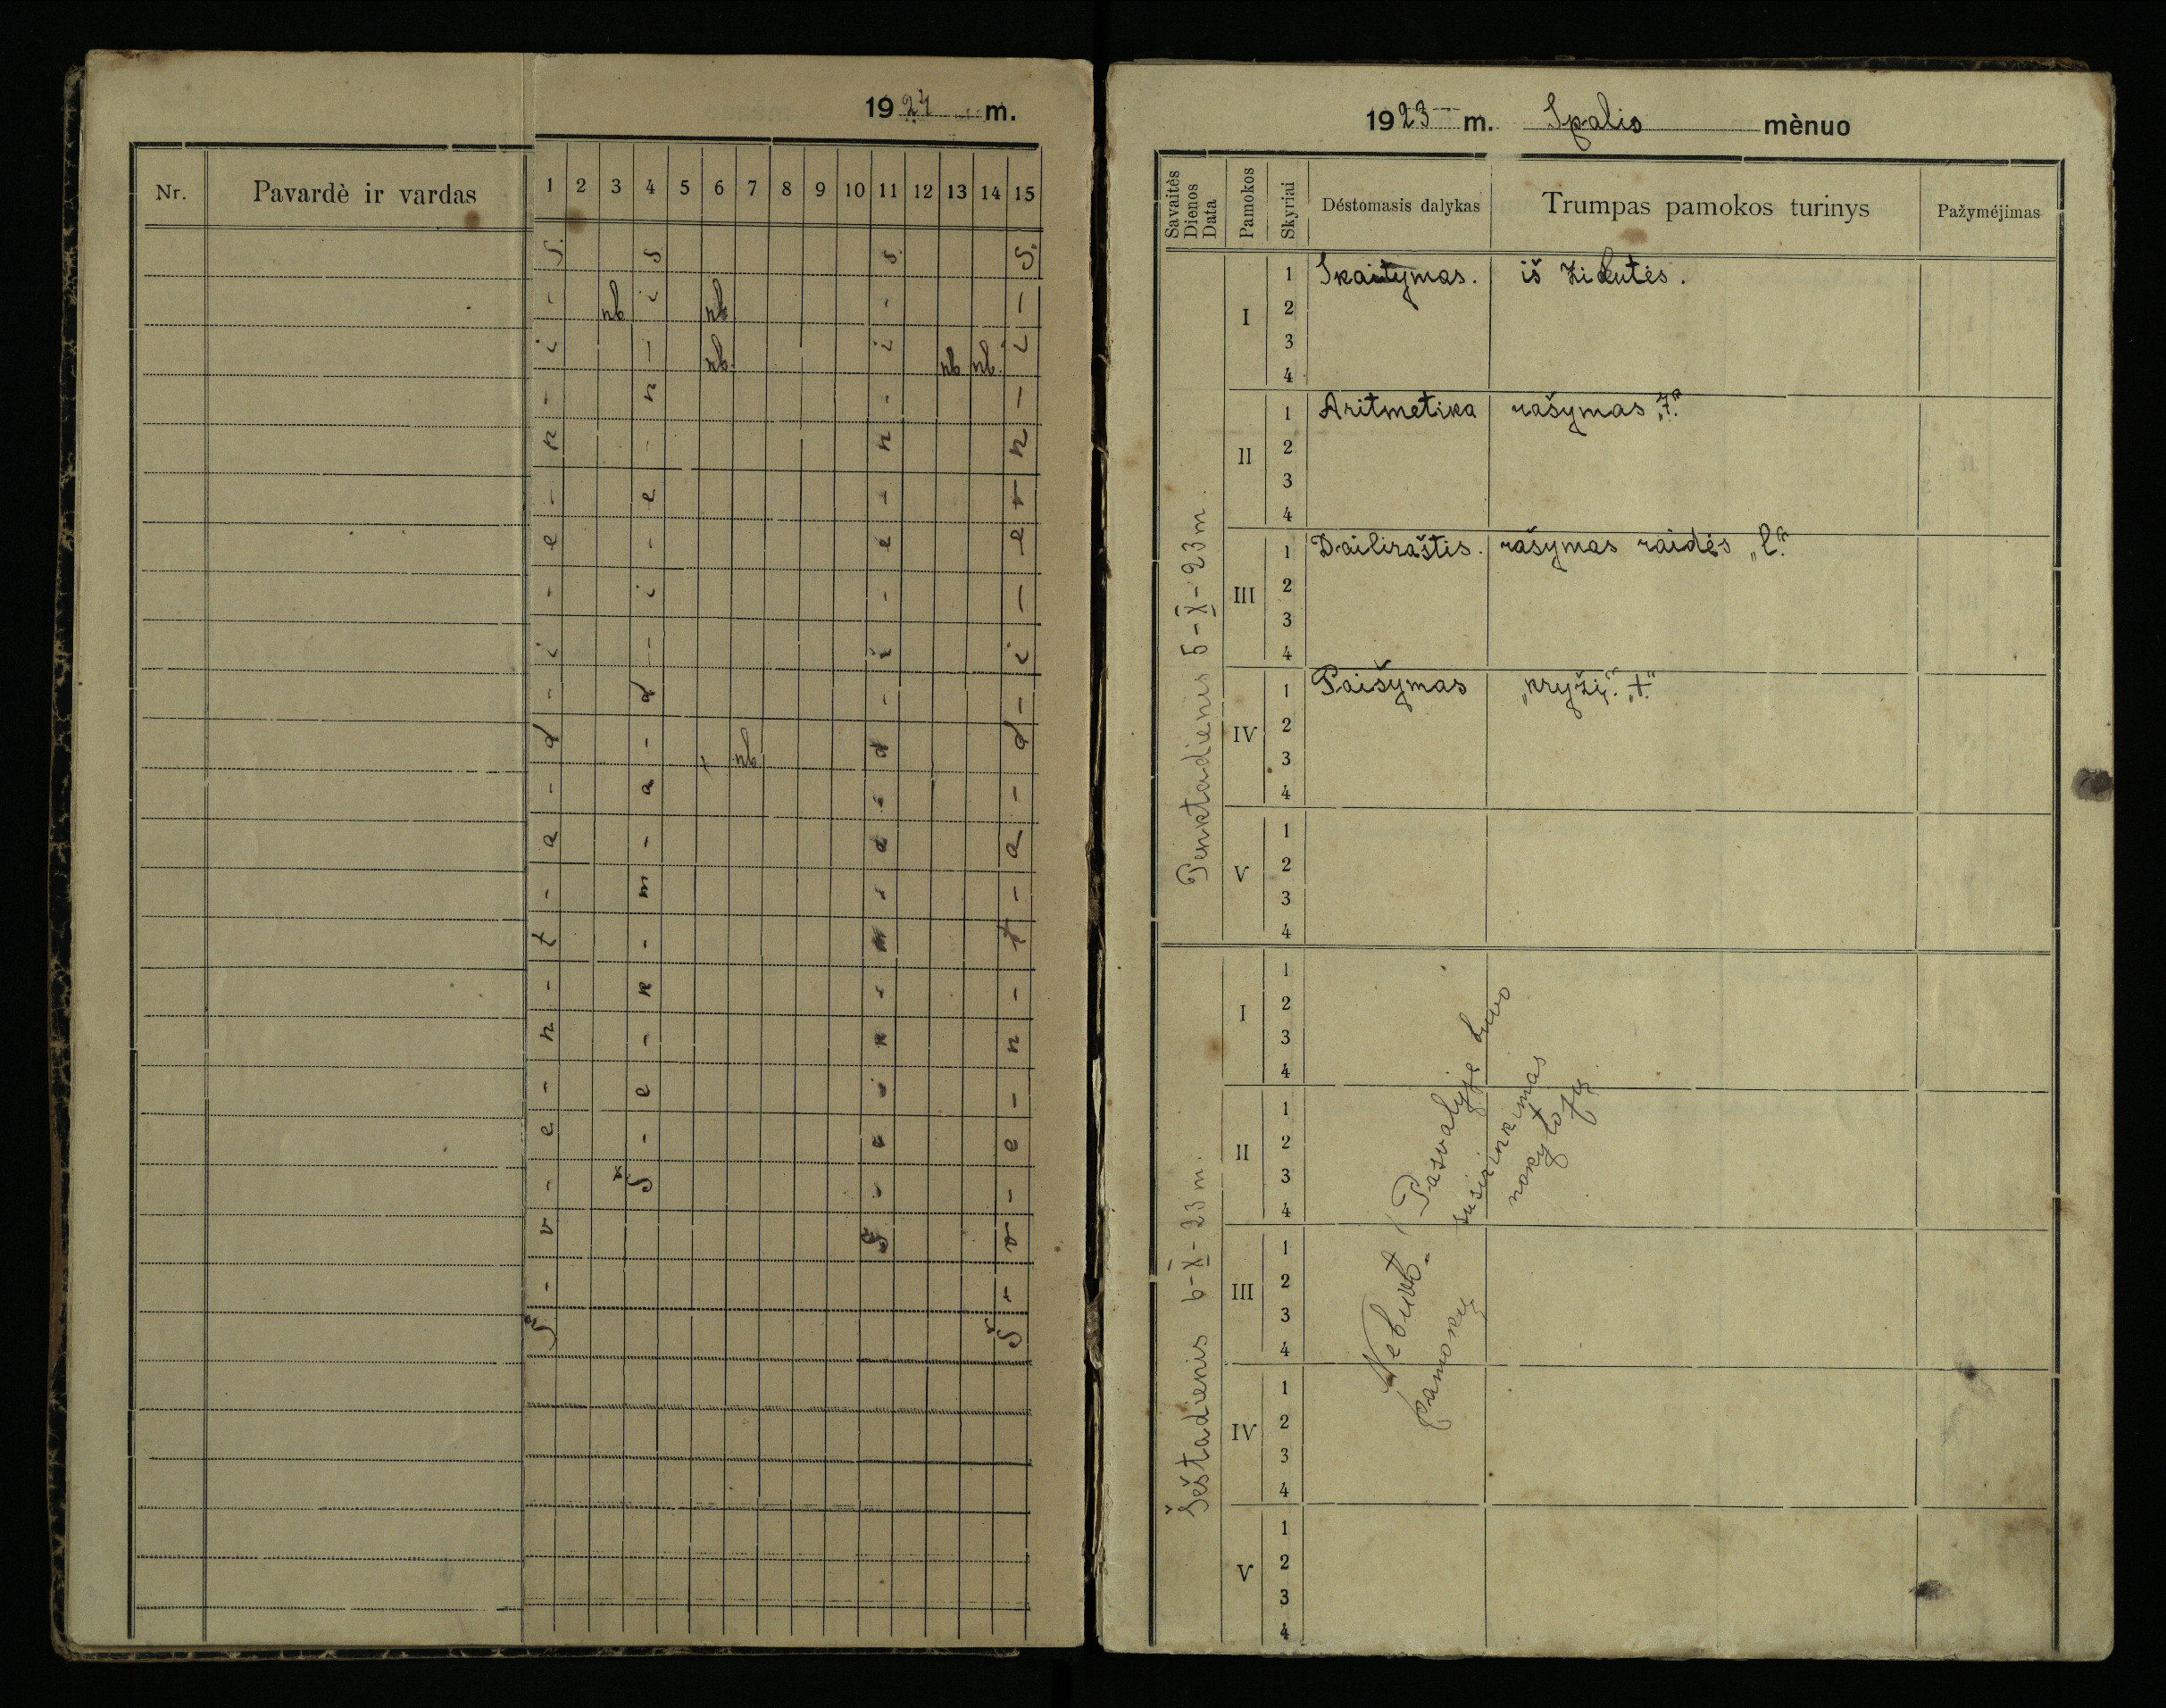 1924 m.
Nr. Pavardė ir vardas 1 2 3 4 5 6 7 8 9 10 11 12 13 14 15
Š-v-e-n-t-a-d-i-e-n-i-s.
Š-e-k-m-a-d-i-e-n-i-s
Š-e-k-m-a-d-i-e-n-i-s.
Š-v-e-n-t-a-d-i-e-n-i-s.
nb nb
nb. nb nb.
+ nb
1923 m. Spalio mėnuo
Savaitės Dienos Data Pamokos Skyriai Dėstomasis dalykas Trumpas pamokos turinys Pažymėjimas
Penktadienis 5-X-23 m.
I 1 Skaitymas. iš Žibutės.
2
3
4
II 1 Aritmetika rašymas „7“.
2
3
4
III 1 Dailiraštis. rašymas raidės „l“.
2
3
4
IV 1 Paišymas „kryžių“. „†“.
2
3
4
V 1
2
3
4
Šeštadienis 6-X-23 m.
I 1
2
3
4
II 1
2
3
4
III 1
2
3
4
IV 1
2
3
4
V 1
2
3
4
Nebuvo
pamokų
Pasvalyje buvo
susirinkimas
mokytojų